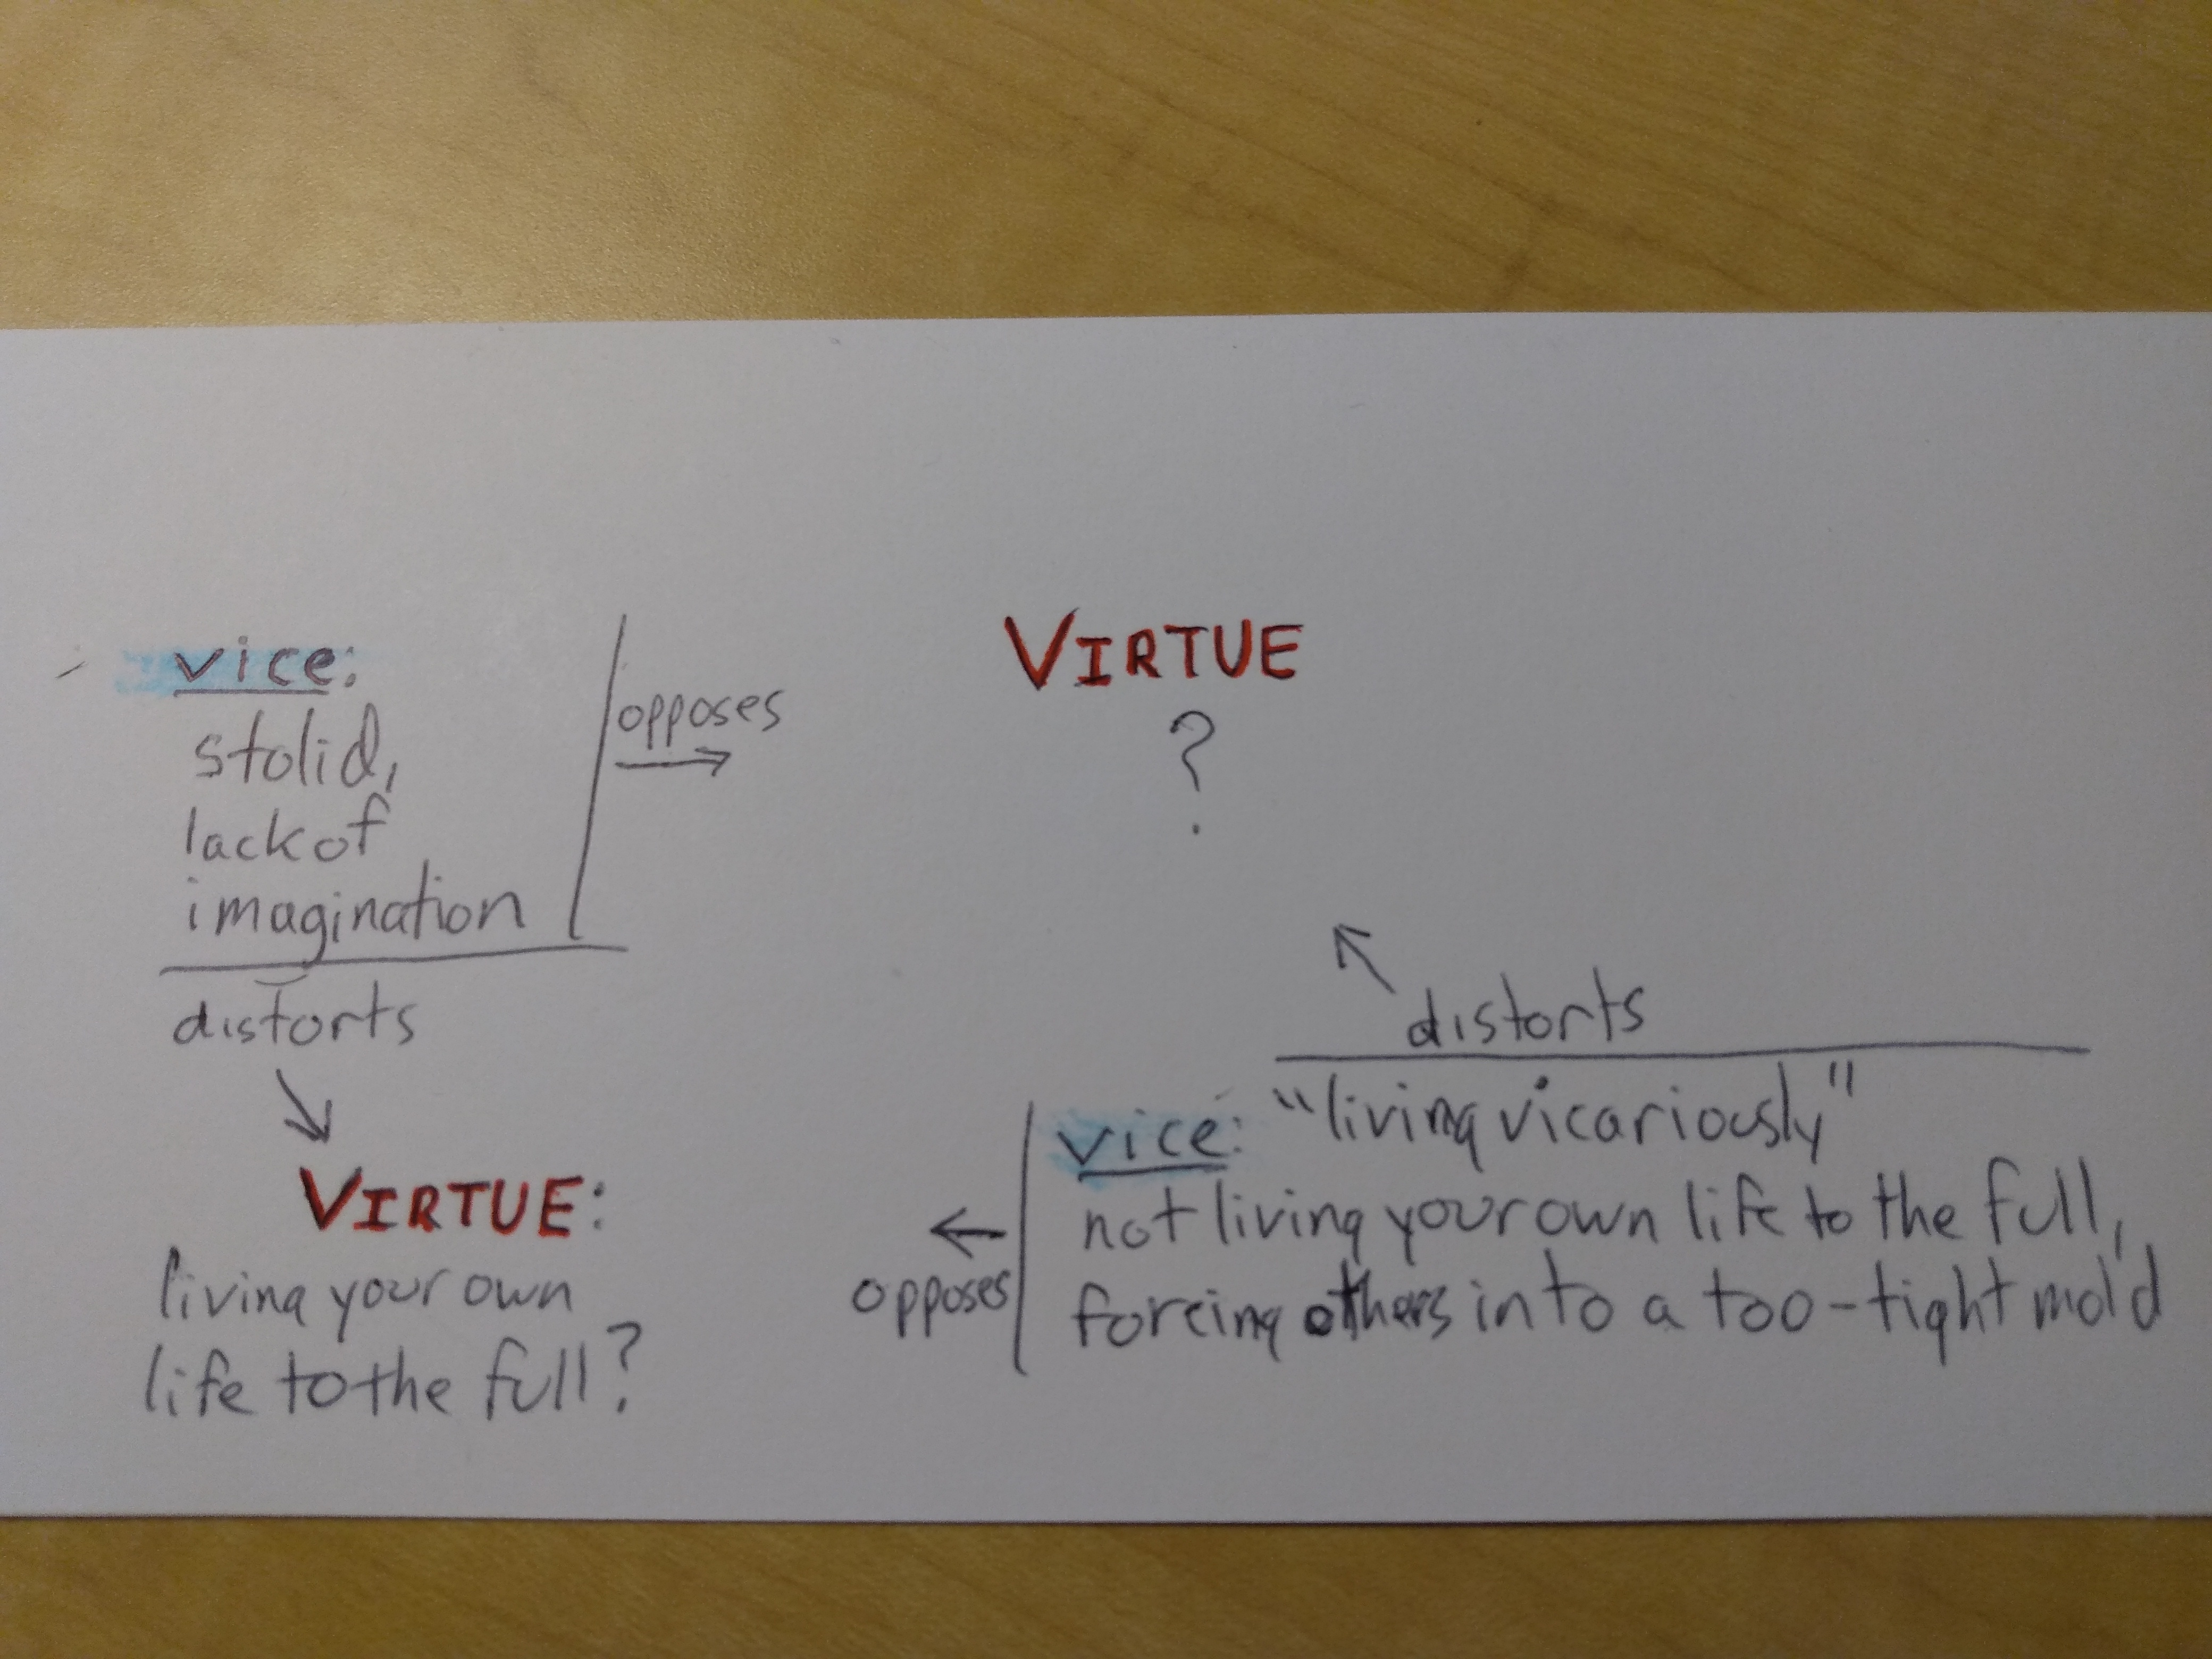 vice:
stolid,
lack of
imagination
opposes
distorts
VIRTUE:
living your own
life to the full?
VIRTUE
?
distorts
vice: "living vicariously"
not living your own life to the full,
forcing others into a too-tight mold
opposes